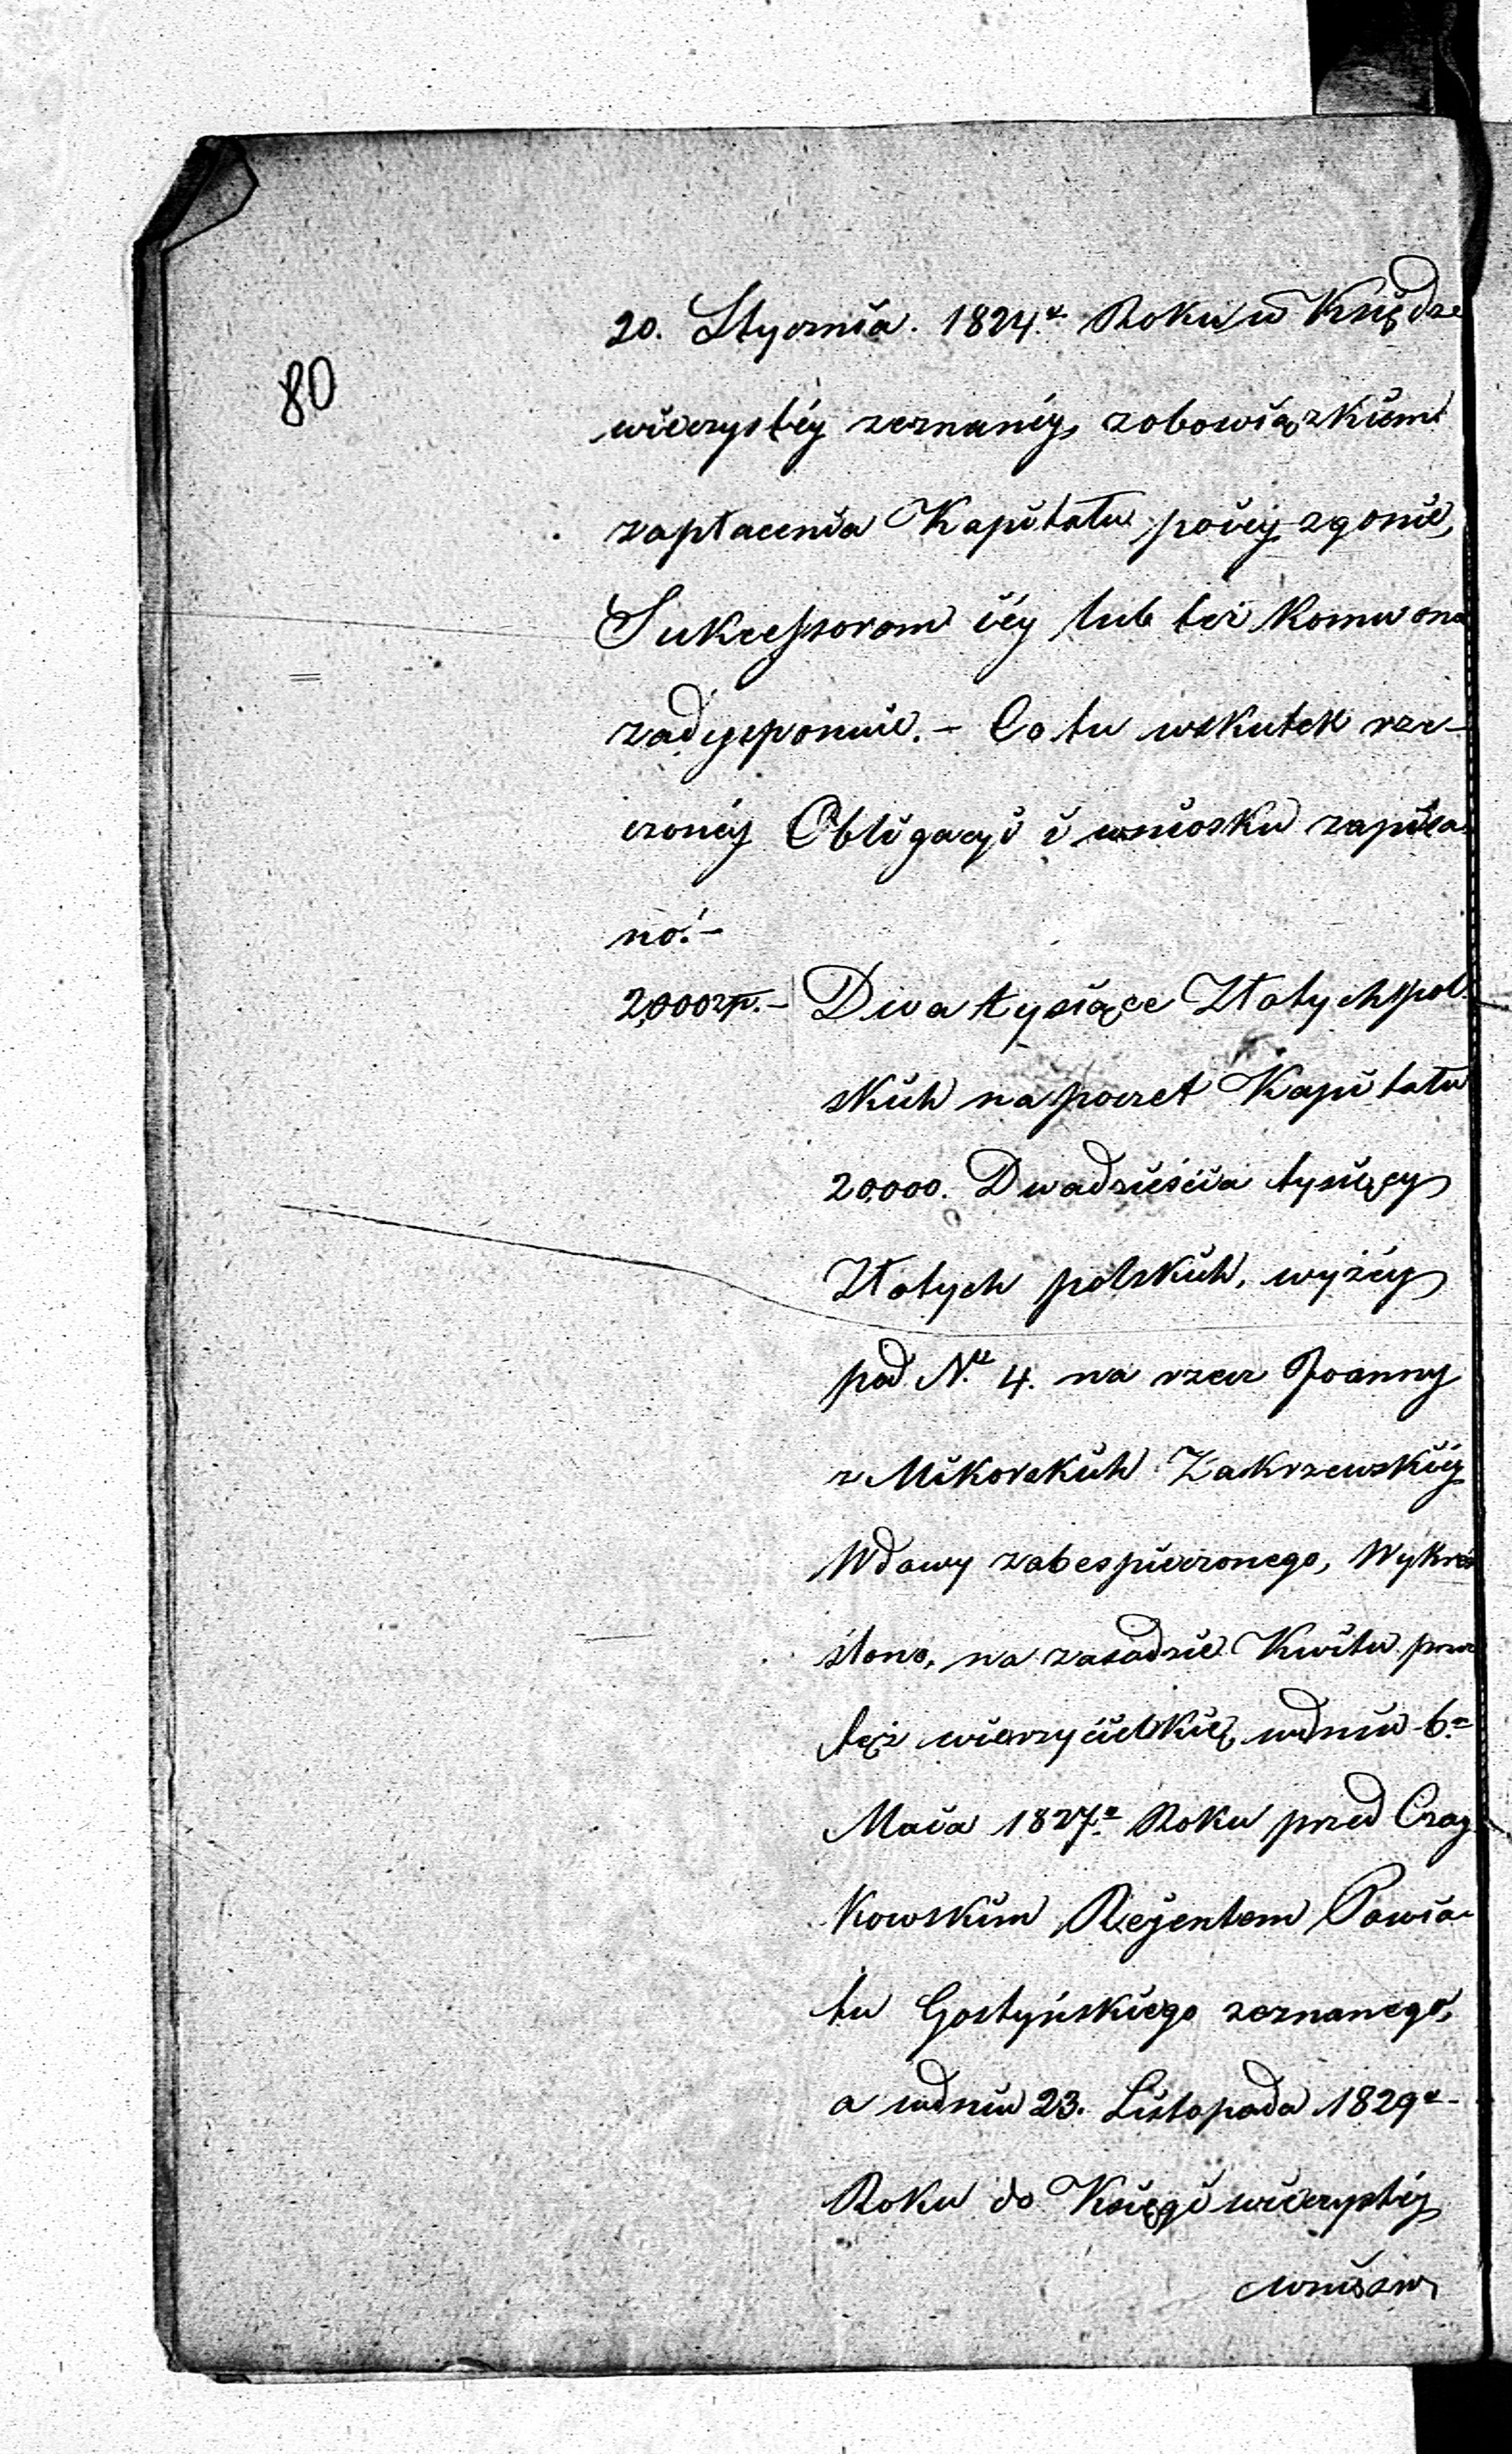 80
20. Stycznia. 1824.º Roku w Księdze
wieczystéy zeznanéy, z obowiązkiem
zapłacenia Kapitału po iéy zgonie,
Sukcessorom iéy lub też komu ona
zadysponuie. – Co tu wskutek rze-
czonéy Obligacyi i wniosku zapisa-
no. –
2,000 zp. – Dwa tysiące Złotych pol-
skich na poczet Kapitału
20000. Dwadzieścia tysięcy
Złotych polskich, wyżéy
pod Nº 4. na rzecz Joanny
z Mikorskich Zakrzewskiéy
Wdowy zabespieczonego, Wykre-
ślono, na zasadzie Kwitu przez
też wierzycielkię, w dniu 6º
Maia 1827º Roku przed Czay-
kowskim Rejentem Powia-
tu Gostyńskiego zeznanego,
a w dniu 23. Listopada 1829º
Roku do Księgi wieczystéy